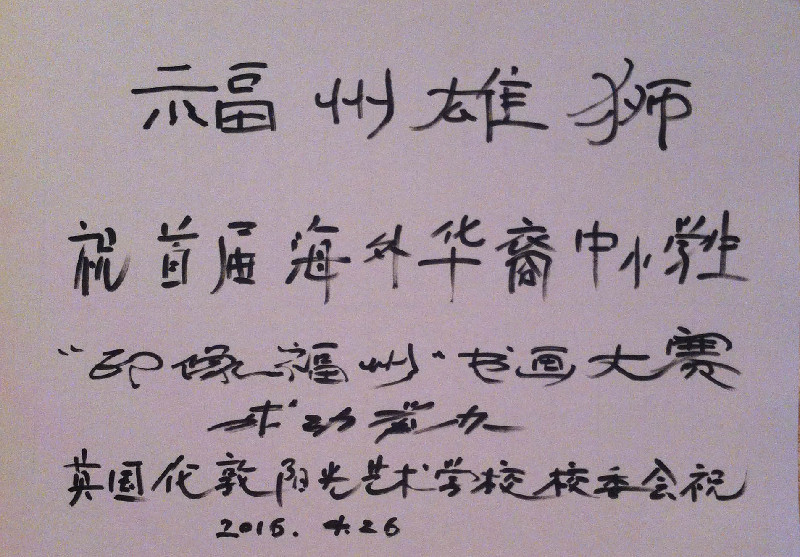 福州雄狮
祝首届海外华裔中小学生
“印象福州”书画大赛
成功举办
英国伦敦阳光艺术学校校委会祝
2016. 4.26